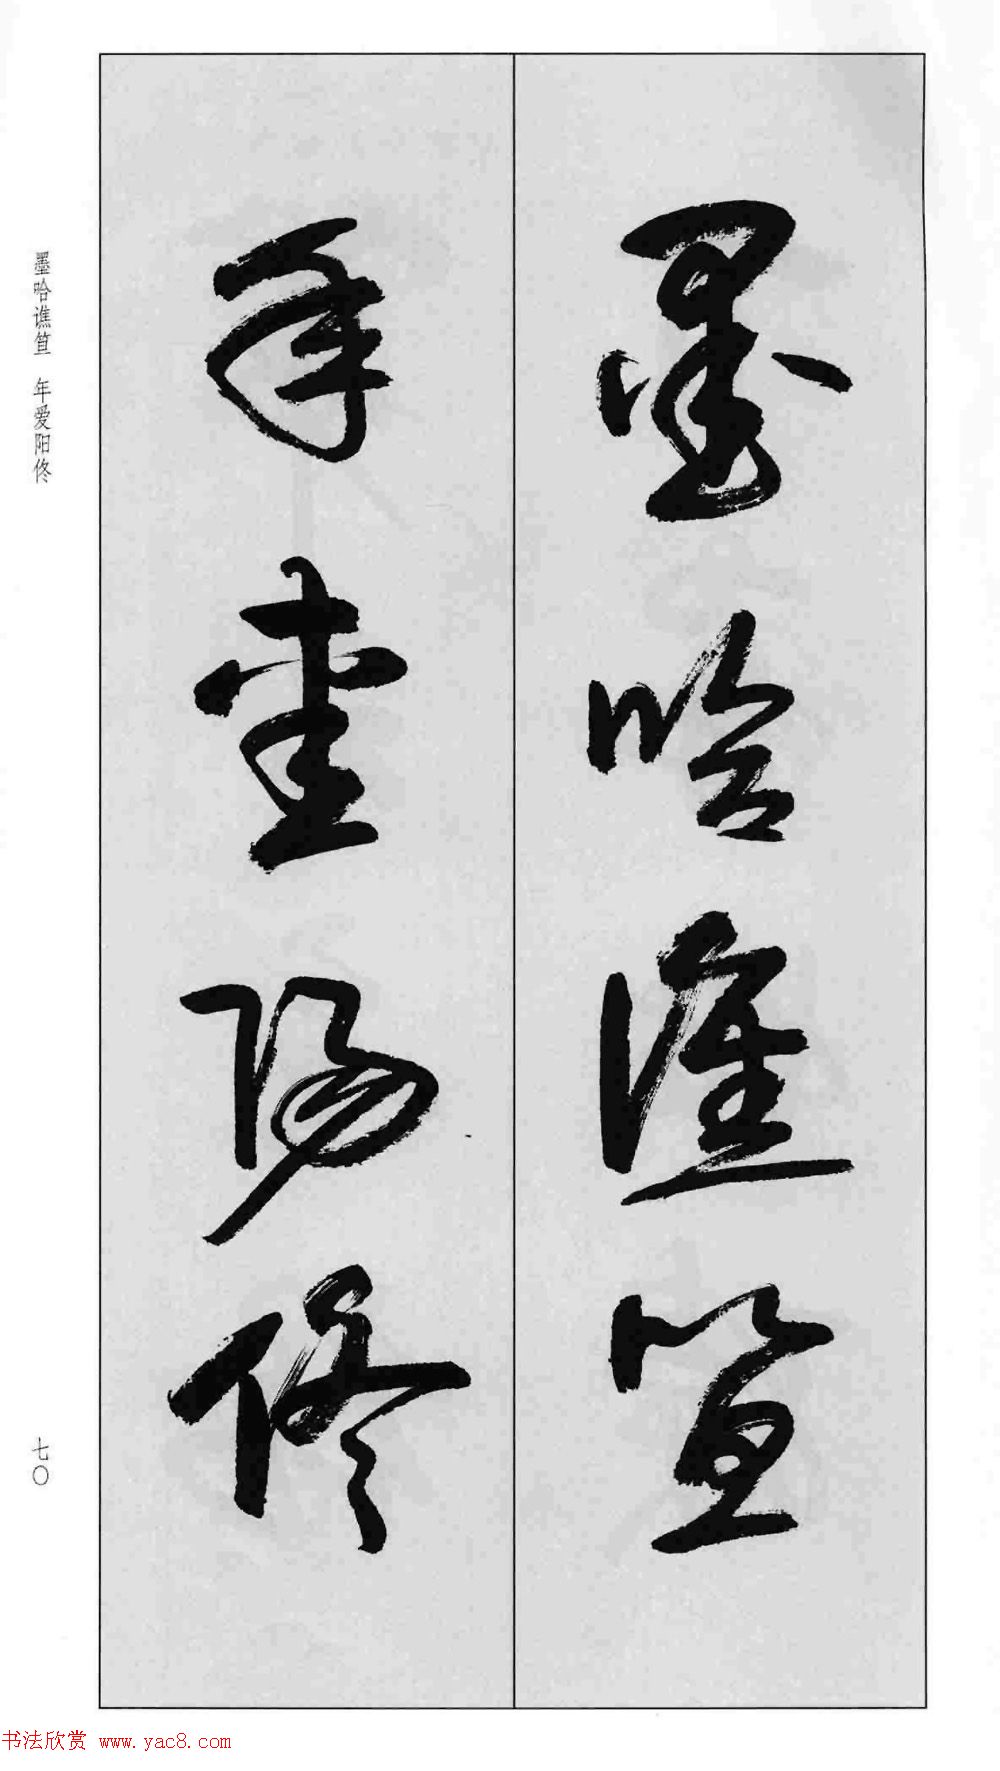 墨哈谯笪
年爱阳佟
墨哈谯笪 年爱阳佟
七〇
书法欣赏 www.yac8.com